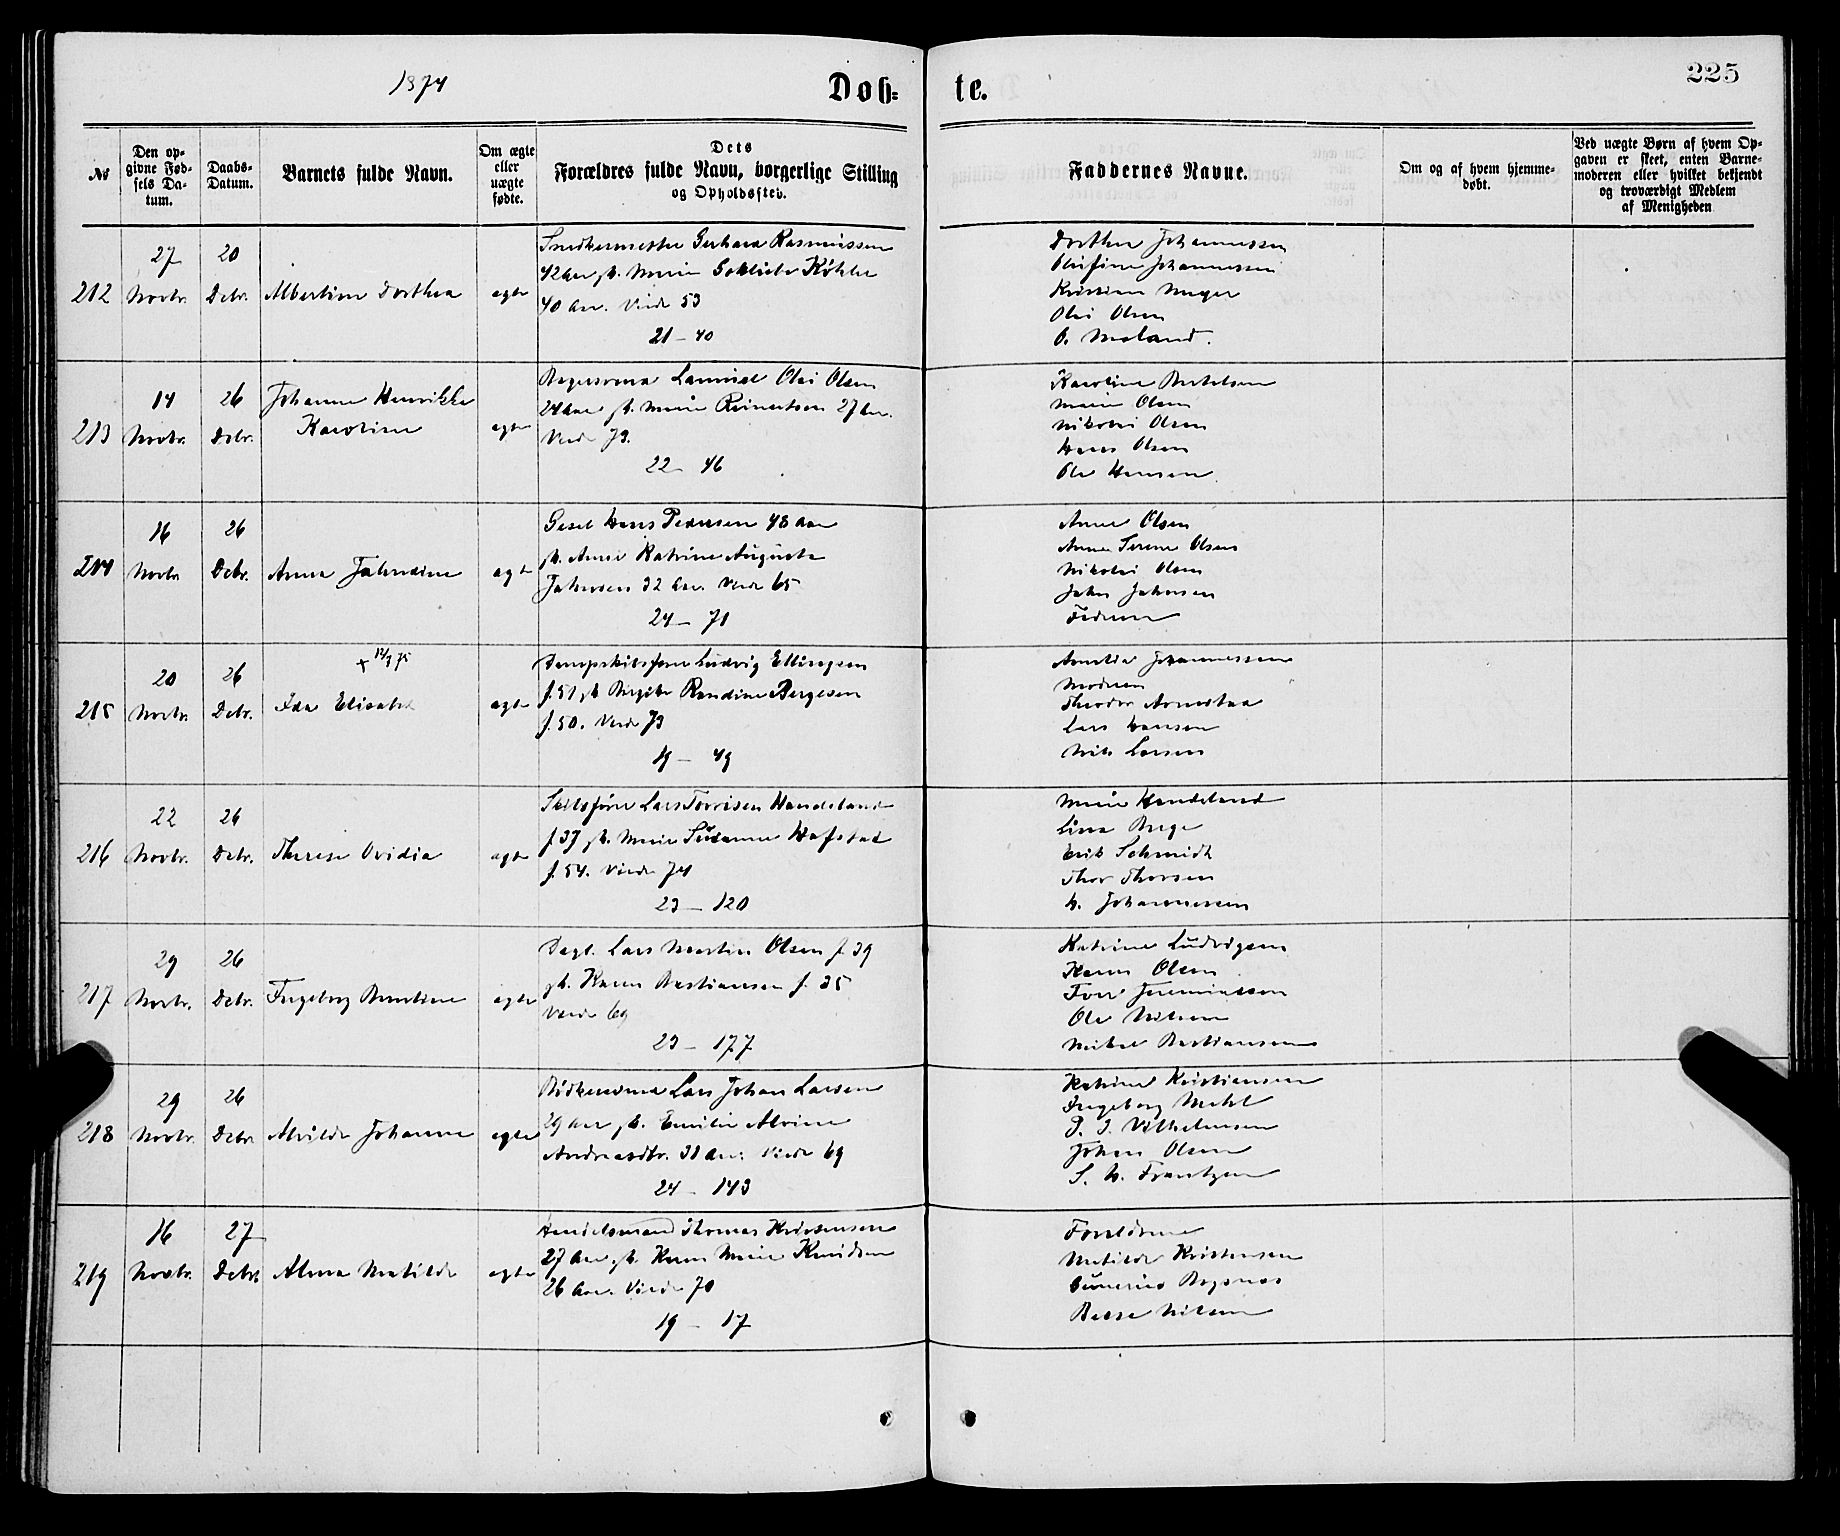 1874
Døb=
te.
225
№
Den op-
givne Fød-
sels Da-
tum.
Daabs-
Datum.
Barnets fulde Navn.
Om ægte
eller
uægte
fødte.
Dets
Forældres fulde Navn, borgerlige Stilling
og Opholdssted.
Faddernes Navne.
Om og af hvem hjemme-
døbt.
Ved uægte Børn af hvem Op-
gaven er skeet, enten Barne-
moderen eller hvilket bekjendt
og troværdigt Medlem
af Menigheden
212
27
Novbr.
20
Debr.
Albertine Dorthea
ægte
Snedkermester Gerhard Rasmussen
42 Aar, g. m. Marie Gotliebe Køhler
40 Aar. Viede 53
21 - 40
Dorthea Johannessen
Olufine Johannessen
Kristian Meyer
Olai Olsen
O. Meland.
213
14
Novbr.
26
Debr.
Johanne Henrikke
Karoline
ægte
Bagersvend Lauritz Olai Olsen
24 Aar, g. m. Marie Reinertsen 27 Aar.
Viede 73.
22 - 46
Karoline Bertelsen
Marie Olsen
Nikolai Olsen
Hans Olsen
Ole Hansen
214
16
Novbr
26
Debr.
Anna Jahndine
ægte
Gesel Hans Pedersen 48 Aar
g. Anne Katrine Augusta
Jahnsen 32 Aar. Viede 65
24 - 71
Anne Olsen
Anne Serene Olsen
Nikolai Olsen
Jahn Jahnsen
Faderen
215
20
Novbr.
26
Debr.
+ 13/9 75
Ida Elisabet
ægte
Dampskibsfører Ludvig Ellingsen
f. 51 g. Birgitte Randine Børgesen
f. 50. Viede 73
19 - 49
Amalie Johannessen
Moderen
Theodor
Lars Hansen
Nils Larsen
216
22
Novbr.
26
Debr.
Therese Ovidia
ægte
Skibsfører Lars Torrisen Handeland
f. 37 g. Marie Susanne Hafstad
f. 54. Viede 74
23 - 120
Marie Handeland
Lina Berge
Erik Schmidt
Thor Thorsen
Johannessen
217
29
Novbr.
26
Debr.
Ingeborg Berntine
ægte
Dagl. Lars Martin Olsen f. 39
g. Karen Bastiansen f. 35
Viede 69
23 - 177
Katrine Ludvigsen
Karen Olsen
Iver Jeremiassen
Ole Nilsen
Mikal Bastiansen
218
29
Novbr.
26
Debr
Alvilde Johanne
ægte
Bødkersvend Lars Johan Larsen
29 Aar g. Emilie Alvine
Andreasdtr. 31 Aar. Viede 69
24 - 143
Katrine Kristiansen
Ingeborg
P. J. Vilhelmsen
Johan Olsen
S. Frantzen
219
16
Novbr.
27
Debr.
Alma Matilde
ægte
Handelsmand Thomas Kristensen
27 Aar, g. Karen Marie Knudsen
26 Aar. Viede 70
19 - 17
Forældrene
Matilde Kristensen
Nilsen